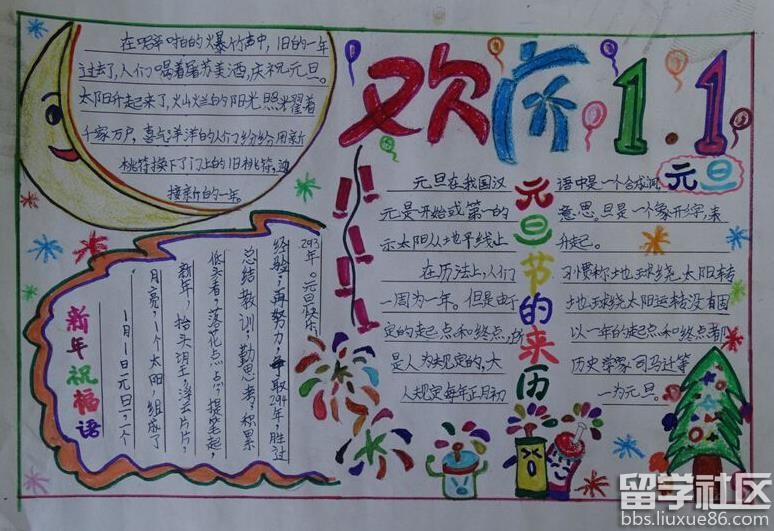 欢庆1.1
元旦
在噼啪的爆竹声中，旧的一年
过去了，人们喝着屠苏美酒，庆祝元旦。
太阳升起来了，火山火兰的阳光照耀着
千家万户，喜气洋洋的人们纷纷用新
桃符换下了门上的旧桃符，迎
接新的一年。
新年祝福语
1月1日元旦，一个
月亮，1个太阳，组成了
新年，抬头望，浮云片片，
低头看，落花点点，提笔起，
总结教训，勤思考，积累
经验，再努力，争取294年，胜过
293年。元旦快乐
元旦节的来历
元旦在我国汉语中是一个合成词
元是开始或第一的意思。旦是一个象形字，来
示太阳从地平线上升起。
在历法上，人们习惯称地球绕太阳转
一周为一年。但是由于地球绕太阳运转没有固
定的起点和终点，以一年的起点和终点都
是人为规定的，大历史学家司马迁等
人规定每年正月初一为元旦。
留学社区
bbs.liuxue86.com